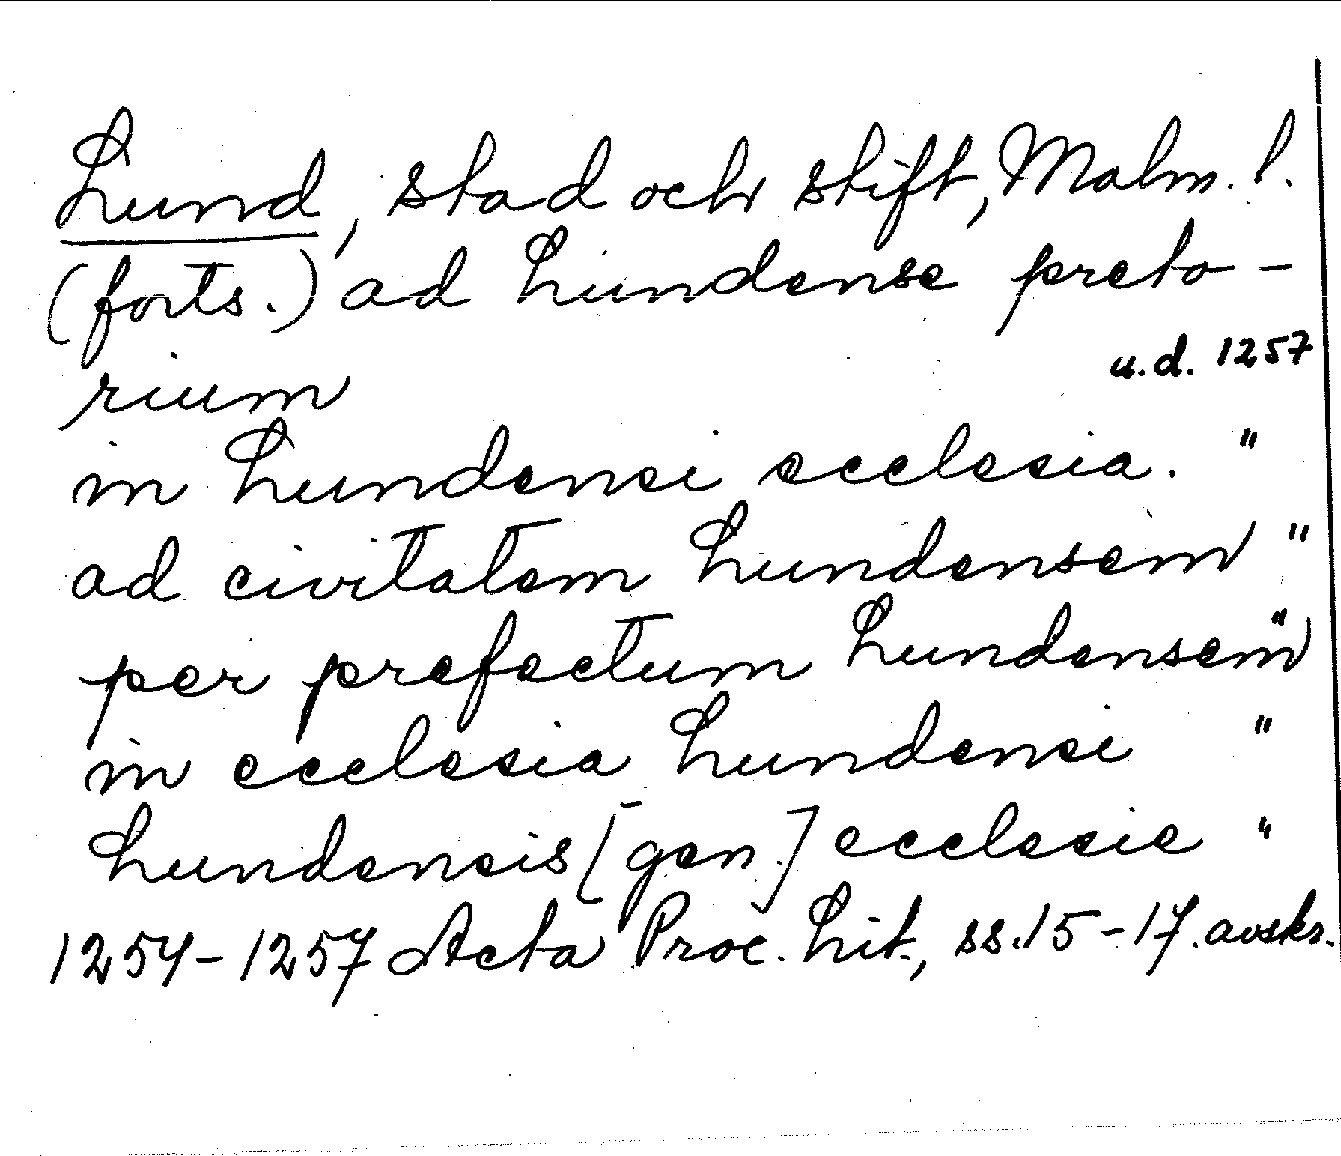 Lund, stad och stift, Malm. l.
(forts.) ad Lundense preto-
rium u.d. 1257
in Lundensi ecclesia. "
ad civitatem Lundensem "
per prefectum Lundensem "
in ecclesia Lundensi "
Lundensis [gen.] ecclesie "
1254-1257 Acta Proc. Lit., ss. 15-17. avskr.